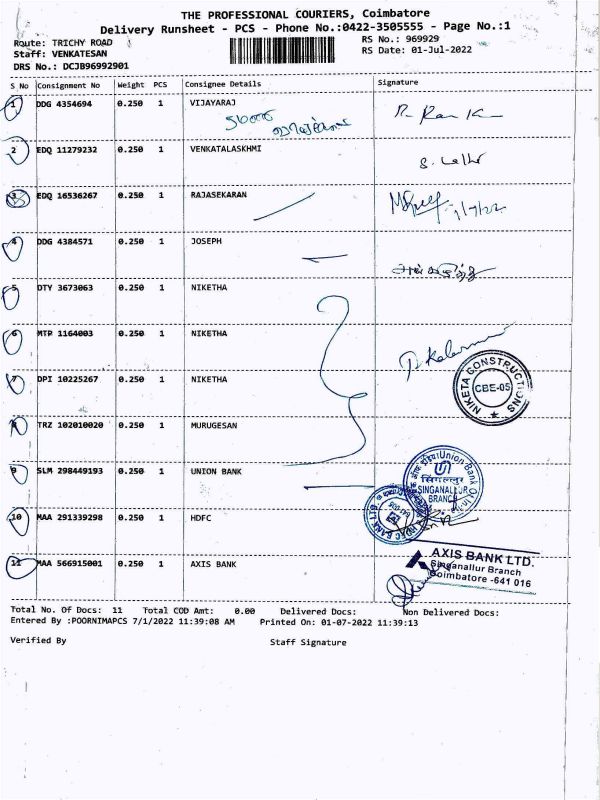 THE PROFESSIONAL COURIERS, Coimbatore
Delivery Runsheet - PCS - Phone No.:0422-3505555 - Page No.:1
Route: TRICHY ROAD RS No.: 969929
Staff: VENKATESAN RS Date: 01-Jul-2022
DRS No.: DCJB96992901
S No Consignment No Weight PCS Consignee Details Signature
1 DDG 4354694 0.250 1 VIJAYARAJ
2 EDQ 11279232 0.250 1 VENKATALASKHMI
3 EDQ 16536267 0.250 1 RAJASEKARAN
1/7/22
4 DDG 4384571 0.250 1 JOSEPH
5 DTY 3673063 0.250 1 NIKETHA
6 MTP 1164003 0.250 1 NIKETHA
NIKETA CONSTRUCTIONS
CBE-05
7 DPI 10225267 0.250 1 NIKETHA
8 TRZ 102010020 0.250 1 MURUGESAN
9 SLM 298449193 0.250 1 UNION BANK
Union Bank
SINGANALLUR
BRANCH
10 MAA 291339298 0.250 1 HDFC
HDFC BANK LTD
11 MAA 566915001 0.250 1 AXIS BANK
AXIS BANK LTD.
Singanallur Branch
Coimbatore -641 016
Total No. Of Docs: 11 Total COD Amt: 0.00 Delivered Docs: Non Delivered Docs:
Entered By :POORNIMAPCS 7/1/2022 11:39:08 AM Printed On: 01-07-2022 11:39:13
Verified By Staff Signature